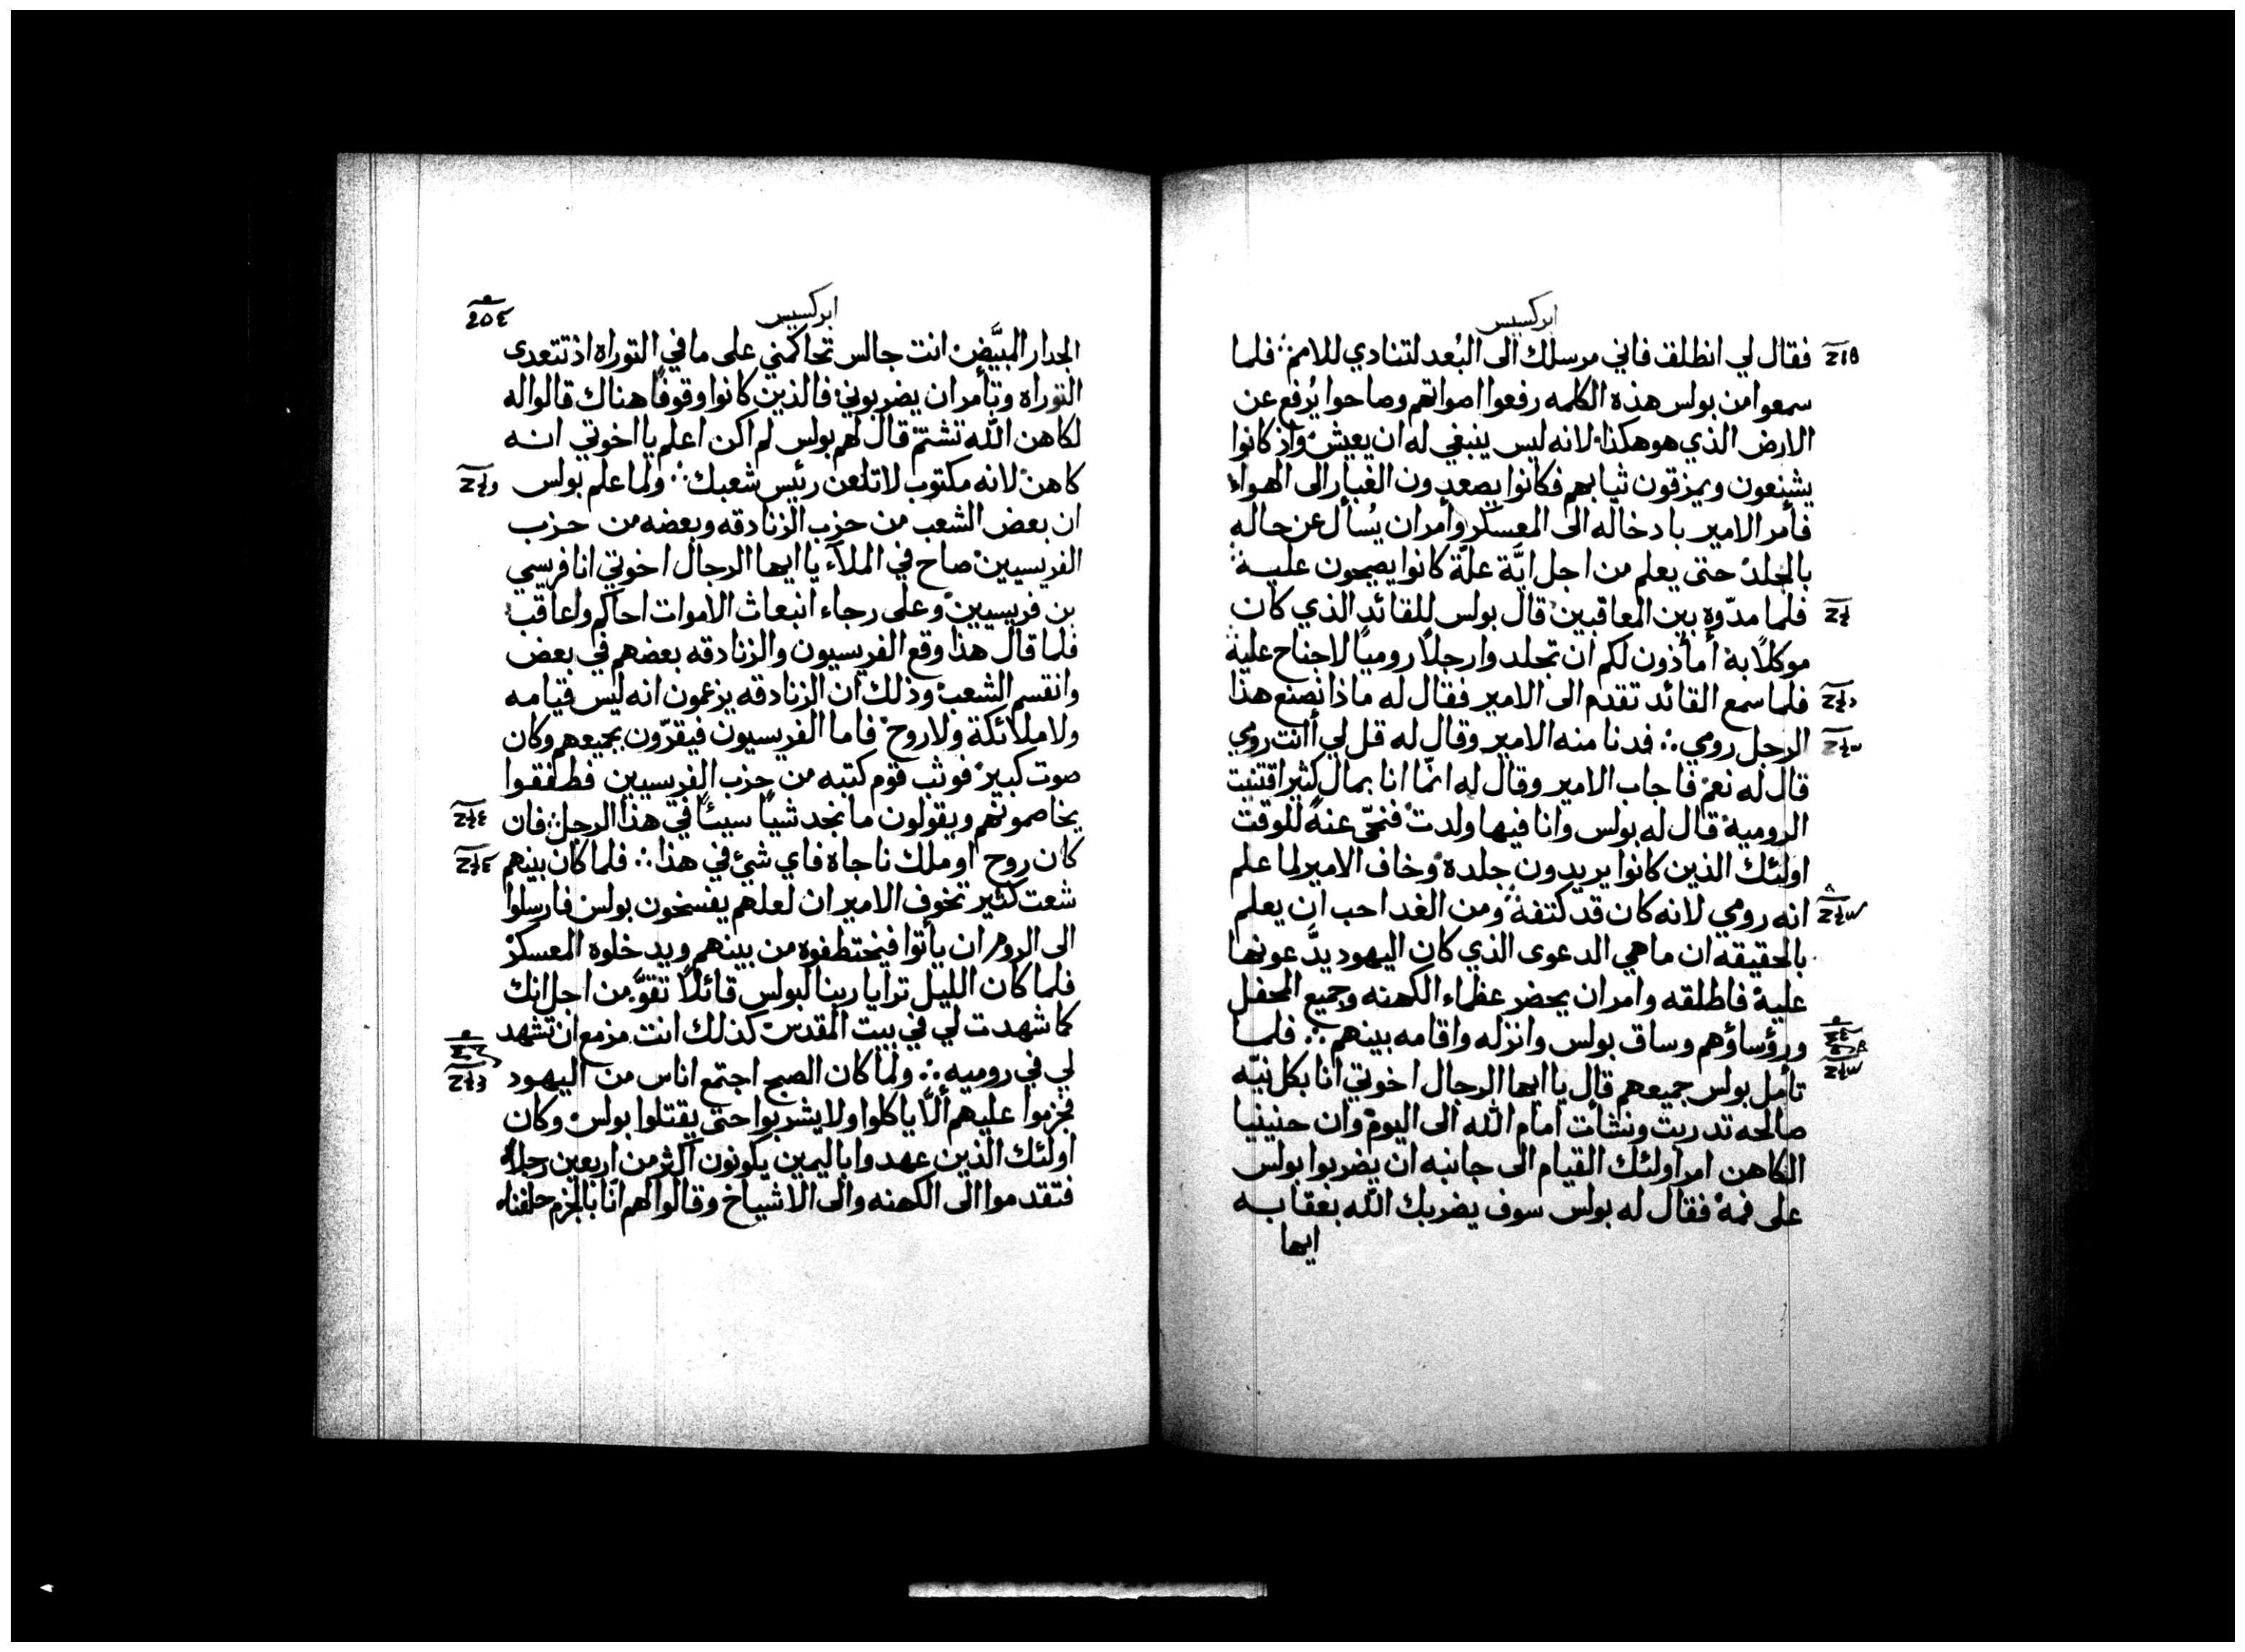 ابركسيس
فقال لي انطلق فاني مرسلك الى البُعد لتنادي للامم ∴ فلما
سمعوا من بولس هذه الكلمه رفعوا اصواتهم وصاحوا يُرفع عن
الارض الذي هو هكذا لانه ليس ينبغي له ان يعيش واذ كانوا
يشنعون ويمزقون ثيابهم فكانوا يصعدون الغبار الى الهواء
فأمر الامير بادخاله الى المعسكر وأمر ان يُسأل عن حاله
بالجلد حتى يعلم من اجل ايَّة علّة كانوا يصيحون عليه
فلما مدّوه بين المعاقبين قال بولس للقائد الذي كان
موكلاً به أمأذون لكم ان تجلدوا رجلاً روميًا لا جناح عليه
فلما سمع القائد تقدم الى الامير فقال له ماذا نصنع هذا
الرجل رومي ∴ فدنا منه الامير وقال له قل لي أانت رومي
قال له نعم فاجاب الامير وقال له انما انا بمال كثير اقتنيت
الروميه قال له بولس وانا فيها ولدت فتنحّى عنه للوقت
اولئك الذين كانوا يريدون جلده وخاف الامير لما علم
انه رومي لانه كان قد كتفه ومن الغد احب ان يعلم
بالحقيقه ان ما هي الدعوى الذي كان اليهود يدَّعونها
عليه فاطلقه وامر ان يحضر عظماء الكهنه وجميع المحفل
ورؤساؤهم وساق بولس وانزله واقامه بينهم ∴ فلما
تأمل بولس جميعهم قال يا ايها الرجال اخوتي انا بكل نيّه
صالحه تدربت ونشأت امام الله الى اليوم وان حنينيا
الكاهن امر اولئك القيام الى جانبه ان يضربوا بولس
على فمه فقال له بولس سوف يضربك الله بعقابه
ايها
ابركسيس
الجدار المبيَّض انت جالس تحاكمني على ما في التوراه اذ تتعدى
التوراه وتأمر ان يضربوني فالذين كانوا وقوفًا هناك قالوا له
لكاهن الله تشتم قال لهم بولس لم اكن اعلم يا اخوتي انه
كاهن لانه مكتوب لا تلعن رئيس شعبك ∴ ولما علم بولس
ان بعض الشعب من حزب الزنادقه وبعضه من حزب
الفريسيين صاح في الملآء يا ايها الرجال اخوتي انا فريسي
بن فريسيين وعلى رجاء انبعاث الاموات احاكم واعاقب
فلما قال هذا وقع الفريسيون والزنادقه بعضهم في بعض
وانقسم الشعب وذلك ان الزنادقه يزعمون انه ليس قيامه
ولا ملائكة ولا روح فاما الفريسيون فيقرّون بجميعهم وكان
صوت كبير فوثب قوم كتبه من حزب الفريسيين فطفقوا
يخاصمونهم ويقولون ما نجد شيأ سيئًا في هذا الرجل فان
كان روح او ملك ناجاه فاي شئ في هذا ∴ فلما كان بينهم
شعت كثير تخوف الامير ان لعلهم يفسخون بولس فارسلوا
الى الروم ان يأتوا فيختطفوه من بينهم ويدخلوه المعسكر
فلما كان الليل ترايا ربنا لبولس قائلاً تقوَّ من اجل انك
كما شهدت لي في بيت المقدس كذلك انت مزمع ان تشهد
لي في روميه ∴ ولما كان الصبح اجتمع اناس من اليهود
فحرموا عليهم ألاّ ياكلوا ولا يشربوا حتى يقتلوا بولس وكان
اولئك الذين عهدوا باليمين يكونون اكثر من اربعين رجلاً
فتقدموا الى الكهنه والى الاشياخ وقالوا لهم انّا بالجزم حلفناه